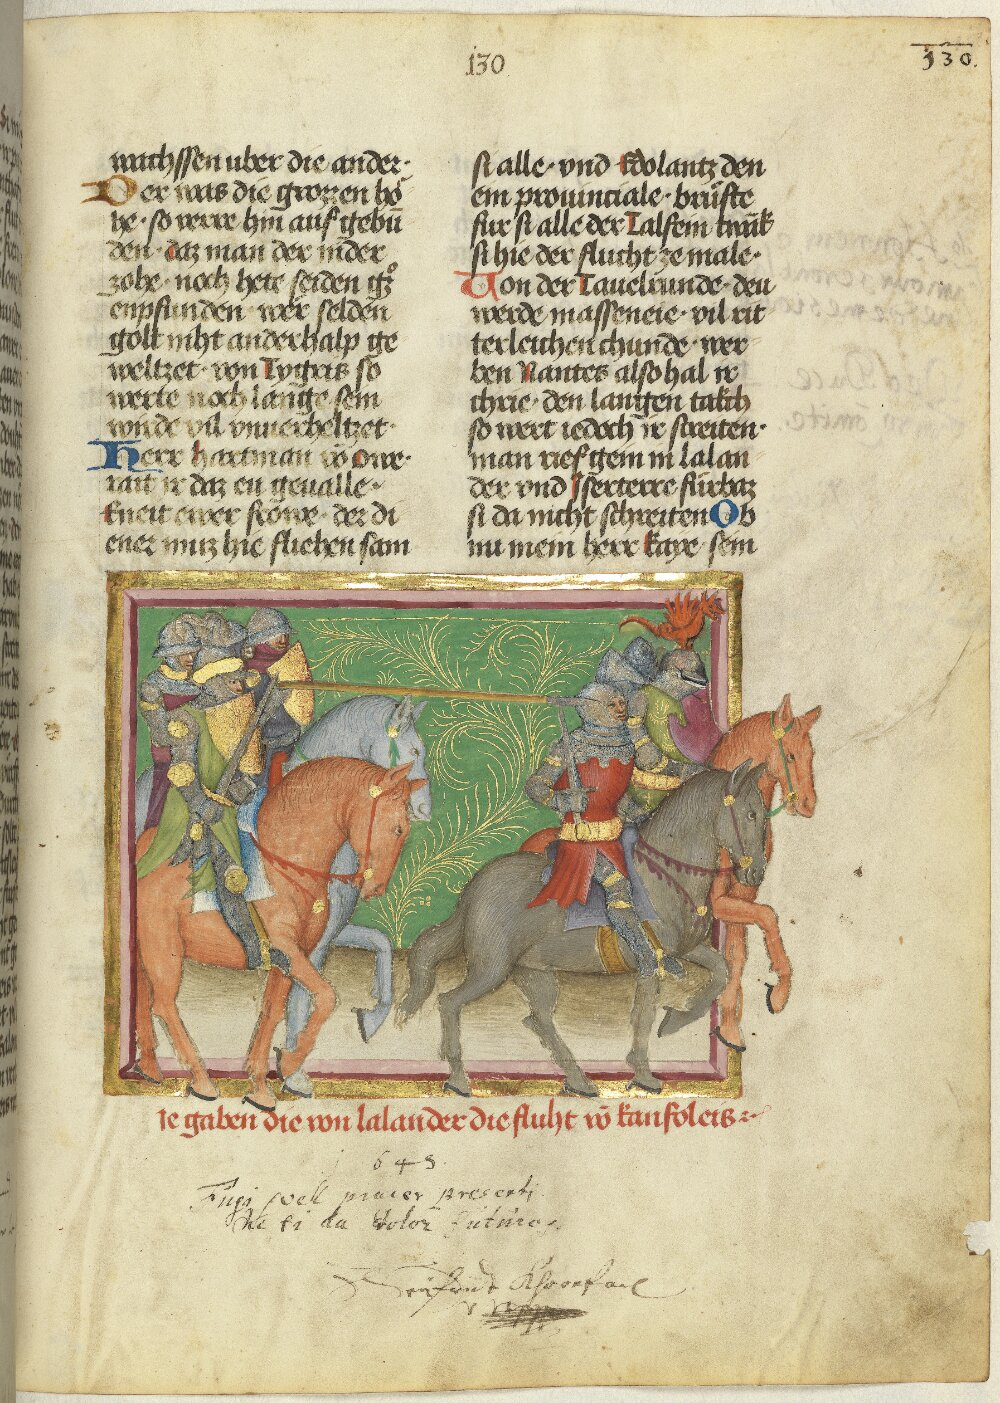 130
130.
wachssen uber die ander·
Der was die grozzen hő
he· so were hin auf gebū
den· daz man der nider
zobe· noch hete selden
enpfunden· wer selden
golt niht anderhalp ge
weltzet· von Tygris so
werte noch lange sein
wurde vil vnuerheltzet·
Herr hartman vō owe·
rait ir daz eu geualle·
kneit ewer frowe· der di
ener muz hie fliehen sam
si alle· vnd Kolantz den
ein prouinciale· brůste
fur si alle der Talfein
si hie der flucht ze male·
Von der Tauelrunde· deu
werde masseneie· vil rit
terleichen chunde· wer
ben Nantes also hal ir
chrie· den langen takch
so wert iedoch ir streiten·
man rief gein in lalan
der vnd Jserterre fůrbaz
si da nicht schreiten Ob
nu mein herr kaye· sein
ie gaben die von lalander die fluht vō kanfoleis
1645
Fugi quel piacer presenti
che ti da dolor futuro.